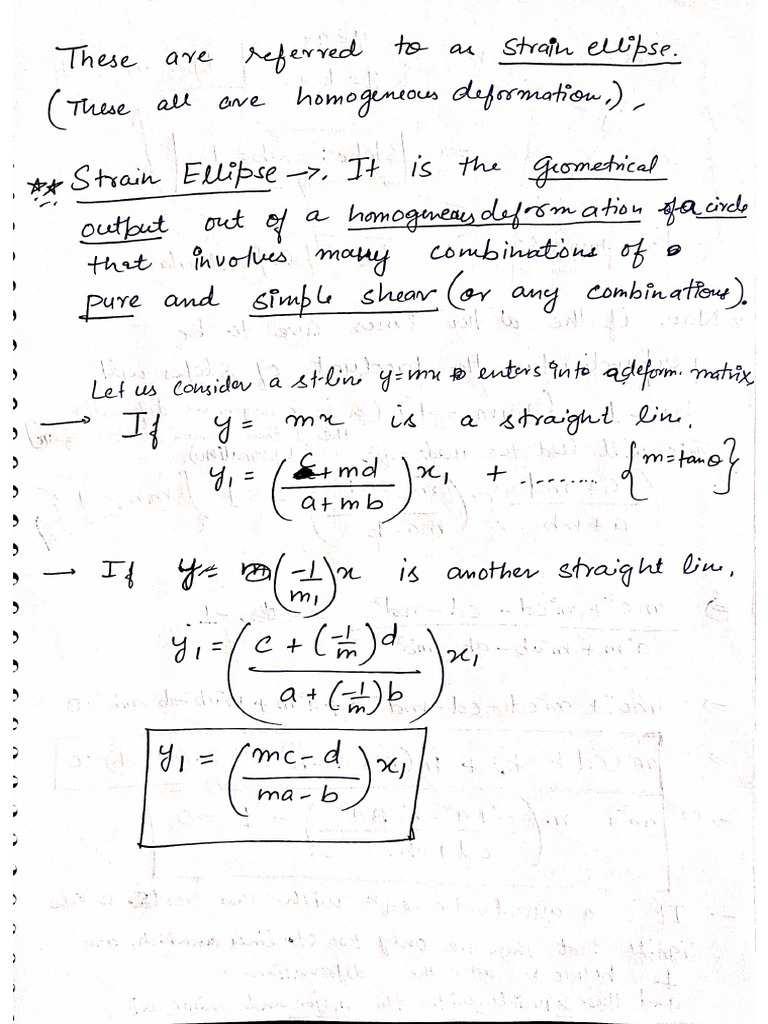 These are referred to as strain ellipse.
(These all are homogeneous deformation.),
** Strain Ellipse →. It is the geometrical
output out of a homogeneous deformation of a circle
that involves many combinations of
pure and simple shear (or any combinations).
Let us consider a st-line y=mx enters into a deform. matrix
→ If y = mx is a straight line.
y₁ = ((c + md)/(a + mb)) x₁ + ........ {m = tanθ}
→ If y = (-1/m₁) x is another straight line.
y₁ = ((c + (-1/m) d)/(a + (-1/m) b)) x₁
y₁ = ((mc - d)/(ma - b)) x₁